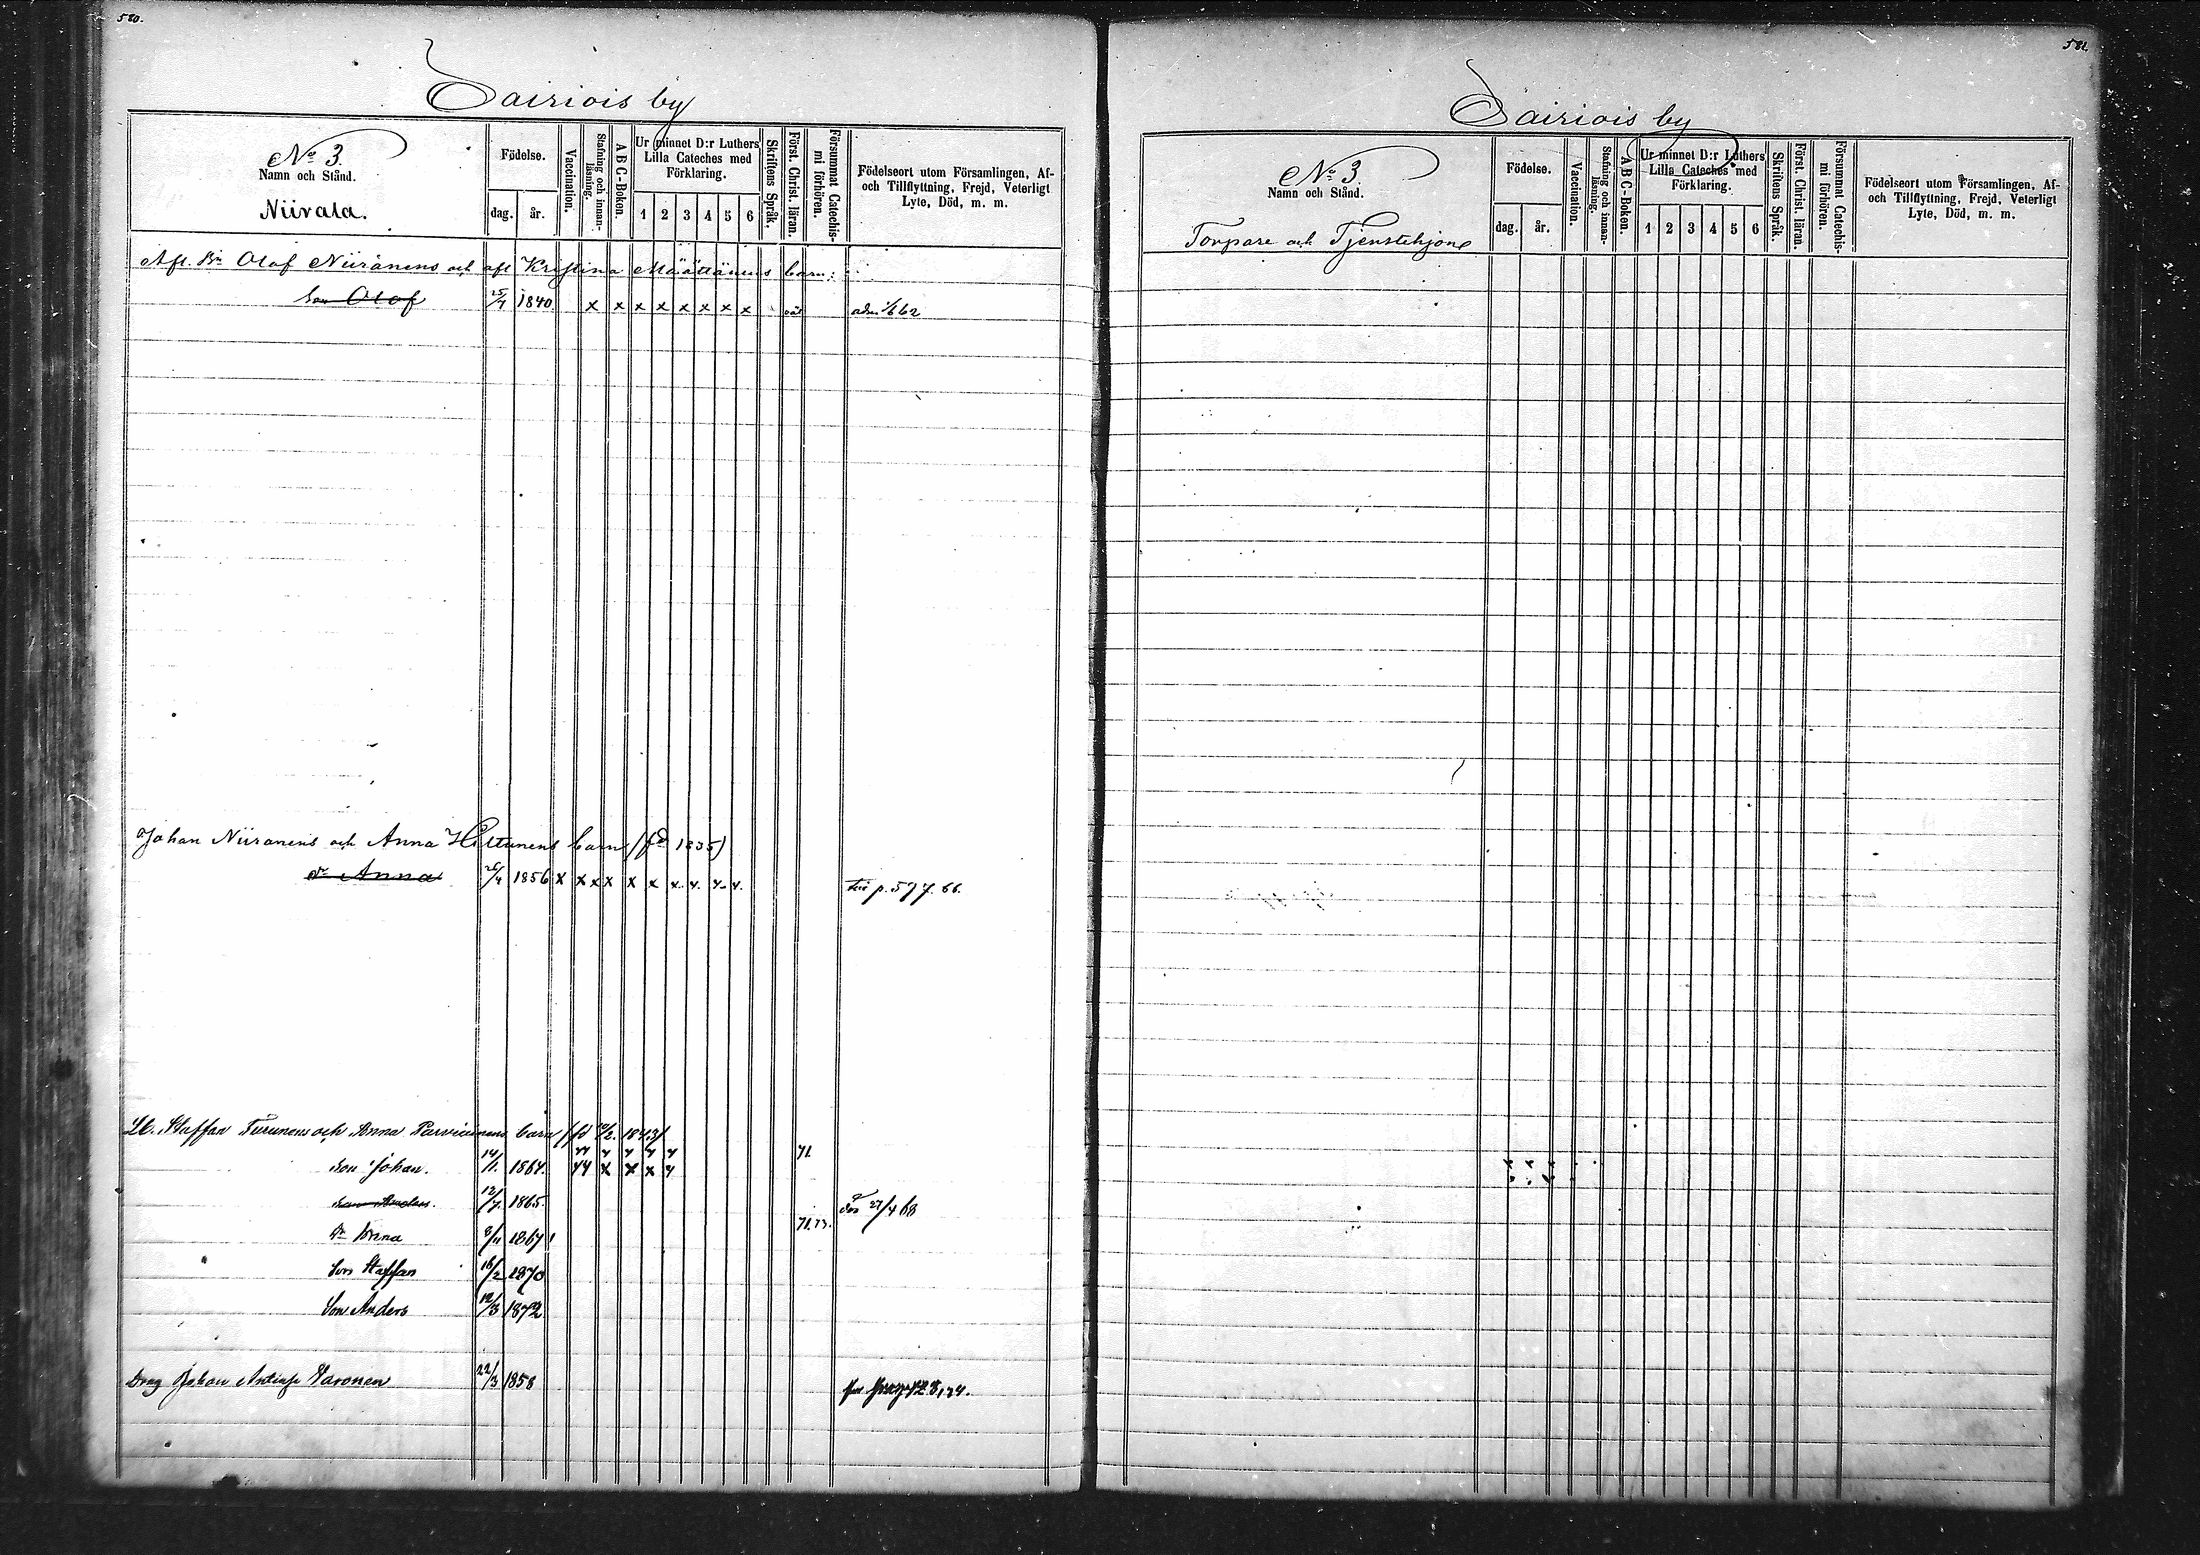 580.
Sairiois by
No 3.
Namn och Stånd.
Niivala.
Födelse.
dag. år.
Vaccination.
Stafning och innanläsning.
A B C-Boken.
Ur minnet D:r Luthers Lilla Cateches med Förklaring.
1 2 3 4 5 6
Skriftens Språk.
Först. Christ. läran.
Försummat Catechismi förhören.
Födelseort utom Församlingen, Af- och Tillflyttning, Frejd, Veterligt Lyte, Död, m. m.
Afl. Bn Olof Niiranens och afl Kristina Määttänens barn:
Son Olof 25/7 1840 x x x x x x x x
Johan Niiranens och Anna Hiltunens barn (fd 1835)
Dr Anna 1856 x x x x x x x
p. 577. 66.
Staffan Turunens och Anna Parviainens barn
71.
Son Johan. 14/1. 1864.
12/7. 1865. 27/4 68
71.73.
Dr Anna 1867
Son Staffan 16/2 1870
Son Anders 12/3 1872
Johan Varonen 22/3 1858
582
Sairiois by
No 3
Namn och Stånd.
Torpare och Tjenstehjon
Födelse.
dag. år.
Vaccination.
Stafning och innanläsning.
A B C-Boken.
Ur minnet D:r Luthers Lilla Cateches med Förklaring.
1 2 3 4 5 6
Skriftens Språk.
Först. Christ. läran.
Försummat Catechismi förhören.
Födelseort utom Församlingen, Af- och Tillflyttning, Frejd, Veterligt Lyte, Död, m. m.